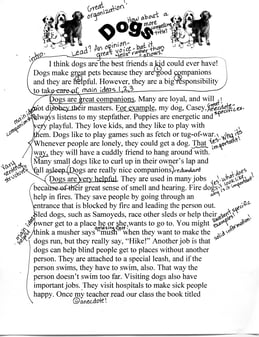 Great organization!
How about a more specific title?
Dogs
Intro:
Lead? An opinion, great voice, but it
I think dogs are the best friends a kid could ever have!
Dogs make great pets because they are good companions
and they are helpful. However, they are a big responsibility
to take care of. main ideas 1,2,3
Dogs are great companions. Many are loyal, and will
not disobey their masters. For example, my dog, Casey,
always listens to my stepfather. Puppies are energetic and
very playful. They love kids, and they like to play with
them. Dogs like to play games such as fetch or tug-of-war.
Whenever people are lonely, they could get a dog. That
way, they will have a cuddly friend to hang around with.
Many small dogs like to curl up in their owner's lap and
fall asleep. Dogs are really nice companions.
Dogs are very helpful. They are used in many jobs
because of their great sense of smell and hearing. Fire dogs
help in fires. They save people by going through an
entrance that is blocked by fire and leading the person out.
Sled dogs, such as Samoyeds, race other sleds or help their
owner get to a place he or she wants to go to. You might
think a musher says "mush" when they want to make the
dogs run, but they really say, "Hike!" Another job is that
dogs can help blind people get to places without another
person. They are attached to a special leash, and if the
person swims, they have to swim, also. That way the
person doesn't swim too far. Visiting dogs also have
important jobs. They visit hospitals to make sick people
happy. Once my teacher read our class the book titled
anecdote!